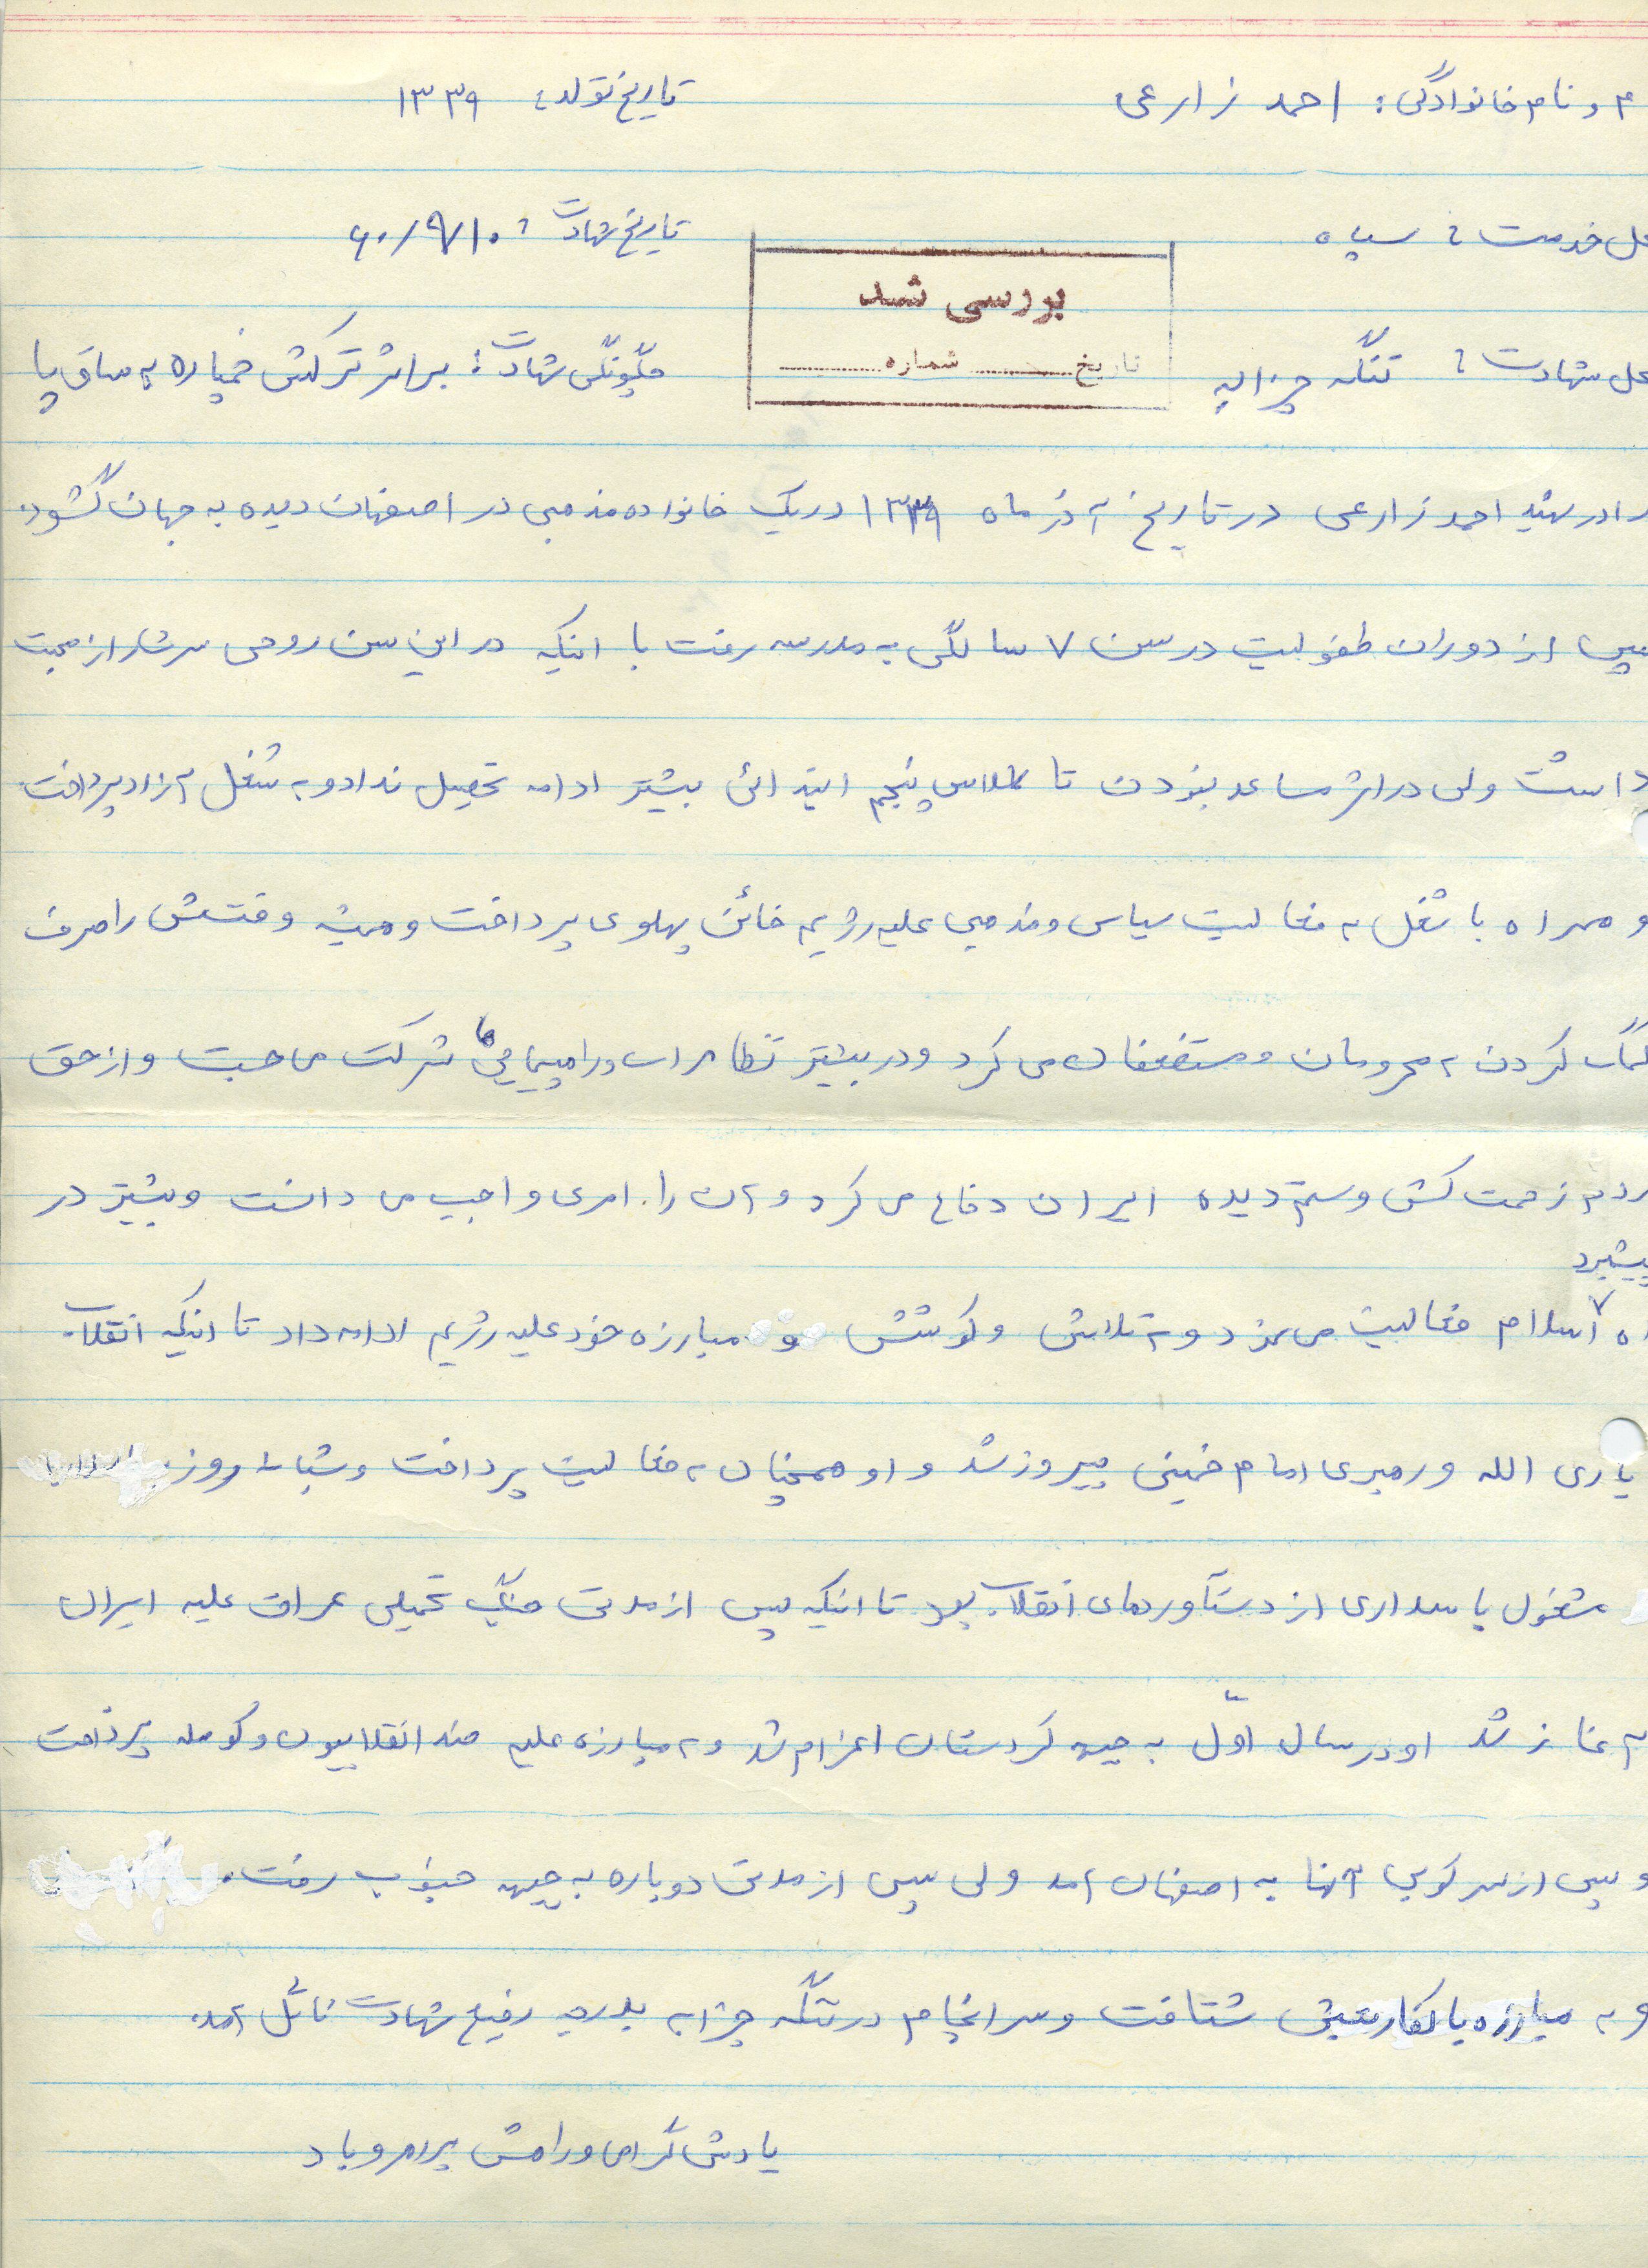 م و نام خانوادگی: احمد زارعی تاریخ تولد: ۱۳۳۹
حل خدمت: سپاه تاریخ شهادت: ۶۰/۹/۱۰
بررسی شد
حل شهادت: تنگه چزابه چگونگی شهادت: بر اثر ترکش خمپاره به ساق پا
تاریخ شماره
رادر شهید احمد زارعی در تاریخ آذر ماه ۱۳۳۹ در یک خانواده مذهبی در اصفهان دیده به جهان گشود.
سپس از دوران طفولیت در سن ۷ سالگی به مدرسه رفت با اینکه در این سن روحی سرشار از محبت
داشت ولی در اثر مساعد نبودن تا کلاس پنجم ابتدائی بیشتر ادامه تحصیل نداد و به شغل آزاد پرداخت
و همراه با شغل به فعالیت سیاسی و مذهبی علیه رژیم خائن پهلوی پرداخت و همیشه وقتش را صرف
کمک کردن به محرومان و مستضعفان می کرد و در بیشتر تظاهرات و راهپیمایی ها شرکت می جست و از حق
ردم زحمت کش و ستم دیده ایران دفاع می کرد و آن را امری واجب می دانست و بیشتر در
پیشبرد
اه اسلام فعالیت می نمود و به تلاش و کوشش و مبارزه خود علیه رژیم ادامه داد تا اینکه انقلاب
یاری الله و رهبری امام خمینی پیروز شد و او همچنان به فعالیت پرداخت و شبانه روز
مشغول پاسداری از دستآوردهای انقلاب بود تا اینکه پس از مدتی جنگ تحمیلی عراق علیه ایران
آغاز شد او در سال اوّل به جبهه کردستان اعزام شد و به مبارزه علیه ضد انقلابیون و کومله پرداخت
و پس از سرکوبی آنها به اصفهان آمد ولی پس از مدتی دوباره به جبهه جنوب رفت.
و به مبارزه با کفار بعثی شتافت و سرانجام در تنگه چزابه بدرجه رفیع شهادت نائل آمد.
یادش گرامی و راهش پر رهرو باد